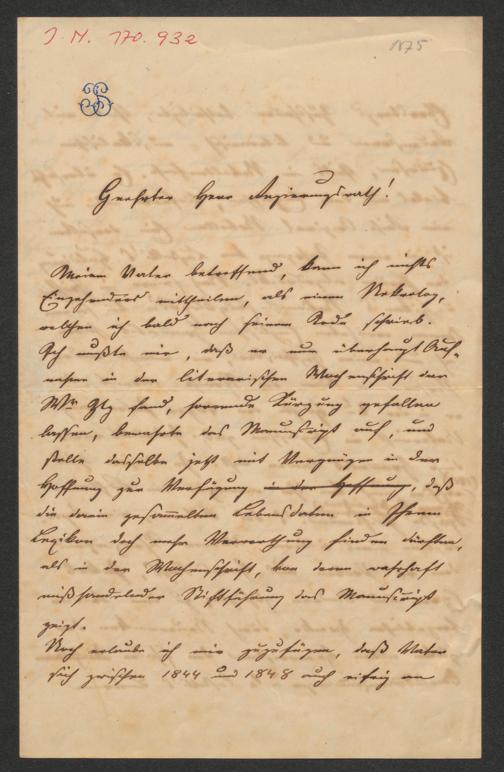 J. N. 170.932
1875
Geehrter Herr Regierungsrath!
Meinen Vater betreffend, kann ich nichts
Eingehenders mittheilen, als einen Nekrolog,
welchen ich bald nach seinem Tode schrieb.
Ich mußte mir, daß er nun überhaupt Auf-
nahme in der literarischen Wochenschrift der
Wr Ztg fand, Kürzung gefallen
lassen, bewahrte das Manuscript auf, und
stelle dasselbe jetzt mit Vergnügen in der
Hoffnung zur Verfügung in der Hoffnung, daß
die darin gesammelten Lebensdaten in Ihrem
Lexikon doch mehr Verwerthung finden dürften,
als in der Wochenschrift, von deren wahrhaft
mißhandelnder Stiftführung das Manuscript
zeigt.
Noch erlaube ich mir zuzufügen, daß Vater
sich zwischen 1844 und 1848 auch eifrig an